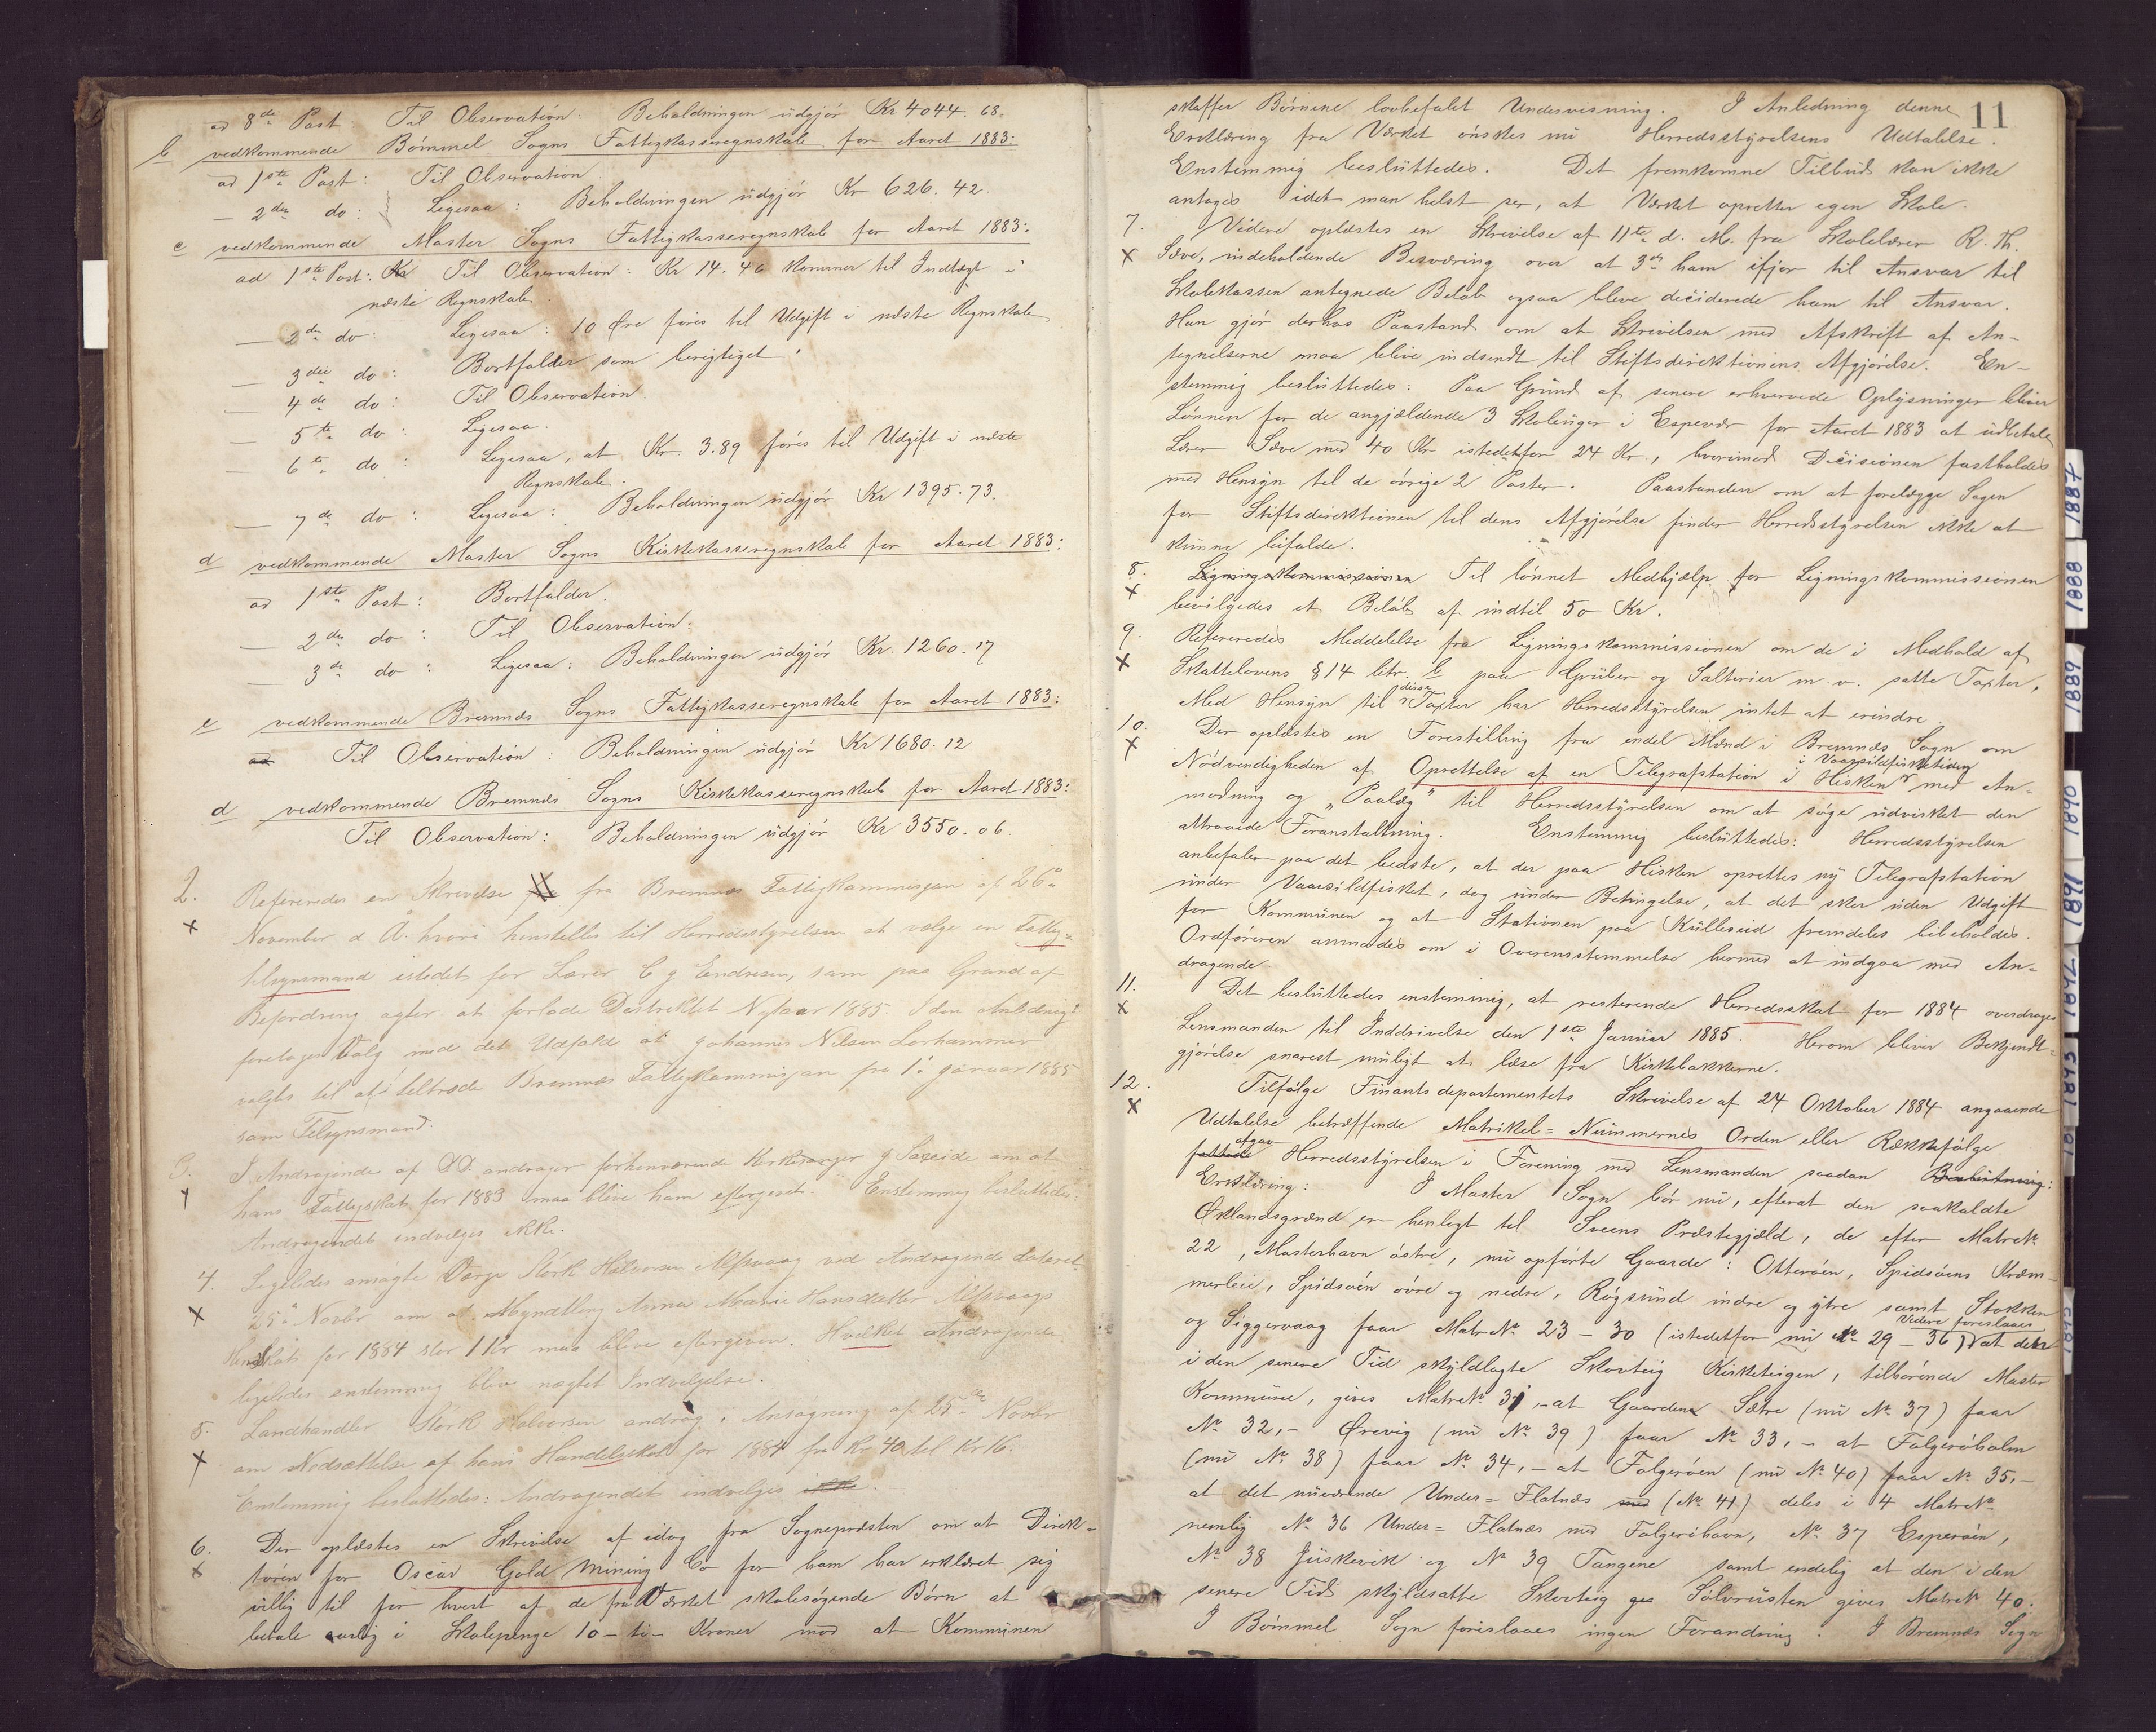 ad 8de Post: Til Observation: Beholdningen udgjör Kr 4044. 68.
b vedkommende Bömmel Sogns Fattigkasseregnskab for Aaret 1883:
ad 1ste Post: Til Observation
— 2den do: Ligesaa: Beholdningen udgjör Kr 626. 42.
c vedkommende Moster Sogns Fattigkasseregnskab for Aaret 1883:
ad 1ste Post: Til Observation: Kr 14. 46 kommer til Indtægt i
næste Regnskab.
— 2de do: Ligesaa: 10 Øre föres til Udgift i næste Regnskab
— 3die do: Bortfalder som berigtiget.
— 4de do: Til Observation
— 5te do: Ligesaa.
— 6te do: Ligesaa, at Kr. 3.89 föres til Udgift i næste
Regnskab.
— 7de do: Ligesaa: Beholdningen udgjör Kr 1395. 73.
d vedkommende Moster Sogns Kirkekasseregnskab for Aaret 1883:
ad 1ste Post: Bortfalder.
— 2den do: Til Observation:
— 3de do: Ligesaa: Beholdningen udgjör Kr. 1260. 17
e vedkommende Bremnes Sogns Fattigkasseregnskab for Aaret 1883:
ad Til Observation: Beholdningen udgjör Kr 1680. 12
d vedkommende Bremnes Sogns Kirkekasseregnskab for Aaret 1883:
Til Observation: Beholdningen udgjör Kr 3550. 06.
2. Refereredes en Skrivelse fra Bremnæs Fattigkommisjon af 26de
x November d. A. hvori henstilles til Herredsstyrelsen at vælge en Fattig=
tilsynsmand istedet for Lærer C g Endresen, som paa Grund af
Befordring agter at forlade Distriktet Nytaar 1885. I den Anledning
foretoges Valg med det Udfald at Johannes Nilsen Lorhammer
valgtes til at tiltræde Bremnæs Fattigkommisjon fra 1ste Januar 1885
som Tilsynsmand.
3. I Andragende af D.D. andrager forhenværende Kirkesanger J Saxeide om at
x hans Fattigskat for 1883 maa blive ham eftergivet. Enstemmig besluttedes:
Andragendet indvilges ikke.
4. Ligeledes ansøgte Verge Störk Halvorsen Alfsvaag ved Andragende dateret
x 25de Novbr om at Myndtling Anna Marie Hansdatter Alfsvaags
skat for 1884 stor 1 Kr maa blive eftergiven. Hvilket Andragende
ligeledes enstemmig blev nægtet Indvilgelse.
5. Landhandler Störk Halvorsen androg i Ansøgning af 25de Novbr
x om Nedsættelse af hans Handelsskat for 1884 fra Kr 40 til Kr 16.
Enstemmig besluttedes: Andragendet indvilges ikke.
6. Der oplæstes en Skrivelse af idag fra Sognepræsten om at Direk-
x tören for Oscar Gold Mining Co for ham har erklæret sig
villig til for hvert af de fra Værket skolesögende Börn at
betale aarlig i Skolepenge 10 – ti – Kroner mod at Kommunen
11
skaffer Börnene lovbefalet Undervisning. I Anledning denne
Erklæring fra Værket önskes nu Herredsstyrelsens Udtalelse.
Enstemmig besluttedes. Det fremkomne Tilbud kan ikke
antages idet man helst ser, at Værket opretter egen Skole.
7. Videre oplæstes en Skrivelse af 11te d. M. fra Skolelærer R. Th.
x Sæve, indeholdende Besværing over at 3de ham ifjor til Ansvar til
Skolekassen antegnede Belöb ogsaa bleve deciderede ham til Ansvar.
Han gjör derhos Paastand om at Skrivelsen med Afskrift af An-
tegnelserne maa blive indsendt til Stiftsdirektionens Afgjörelse. En-
stemmig besluttedes: Paa Grund af senere erhvervede Oplysninger bliver
Lönnen for de angjældende 3 Skoleuger i Espevær for Aaret 1883 at udbetale
Lærer Sæve med 40 Kr istedetfor 24 Kr., hvorimod Decisionen fastholdes
med Hensyn til de övrige 2 Poster. Paastanden om at forelægge Sagen
for Stiftsdirektionen til dens Afgjörelse finder Herredsstyrelsen ikke at
kunne bifalde.
8. Ligningskommissionen Til lönnet Medhjælp for Ligningskommissionen
x bevilgedes et Belöb af indtil 50 Kr.
9. Refereredes Meddelelse fra Ligningskommissionen om de i Medhold af
x Skattelovens § 14 litr. b paa Gruber og Salterier m. v. satte Taxter,
Med Hensyn til disse Taxter har Herredsstyrelsen intet at erindre.
10. Der oplæstes en Forestilling fra endel Mænd i Bremnæs Sogn om
x Nödvendigheden af Oprettelse af en Telegrafstation i Hisken i Vaarsildfisketiden med An-
modning og „Paalæg" til Herredsstyrelsen om at söge udvirket den
attraaede Foranstaltning. Enstemmig besluttedes: Herredsstyrelsen
anbefaler paa det bedste, at der paa Hisken oprettes ny Telegrafstation
under Vaarsildfisket, dog under Betingelse, at det sker uden Udgift
for Kommunen og at Stationen paa Kulleseid fremdeles bibeholdes.
Ordföreren anmodes om i Overensstemmelse hermed at indgaa med An-
dragende.
11. Det besluttedes enstemmig, at resterende Herredsskat for 1884 overdrages
x Lensmanden til Inddrivelse den 1ste Januar 1885. Herom bliver Bekjendt=
gjörelse snarest muligt at læse fra Kirkebakkerne.
12. Tilfölge Finantsdepartementets Skrivelse af 24 Oktober 1884 angaaende
x Udtalelse betræffende Matrikel=Nummernes Orden eller Rækkefölge
fattede afgav Herredsstyrelsen i Forening med Lensmanden saadan Beslutning:
Erklæring: I Moster Sogn bör nu, efterat den saakaldte
Øklandsgrænd er henlagt til Sveens Præstegjæld, de efter Matr№
22, Mosterhavn östre, nu opförte Gaarde: Otteröen, Spidsöens Kræm-
merleie, Spidsöen övre og nedre, Rögsund indre og ytre samt Stokken
og Siggervaag faar Matr№ 23 – 30 (istedetfor nu № 29 – 36) Videre foreslaaes at den
i den senere Tid skyldlagte Skovteig Kirketeigen, tilhörende Moster
Kommune, gives Matr№ 31, – at Gaarden Sætre (nu № 37) faar
№ 32, – Ørevig (nu № 39) faar № 33, – at Folgeröholm
(nu № 38) faar № 34, – at Folgeröen (nu № 40) faar № 35, –
at det nuværende Under=Flatnæs med (№ 41) deles i 4 Matr№
nemlig № 36 Under=Flatnæs med Folgeröhavn, № 37 Esperöen,
№ 38 Juskevik og № 39 Tangene samt endelig at den i den
senere Tid skyldsatte Skovteig Sölvrusten gives Matr№ 40.
I Bömmel Sogn foreslaaes ingen Forandring. I Bremnæs Sogn
1887
1888
1889
1890
1891
1892
1893